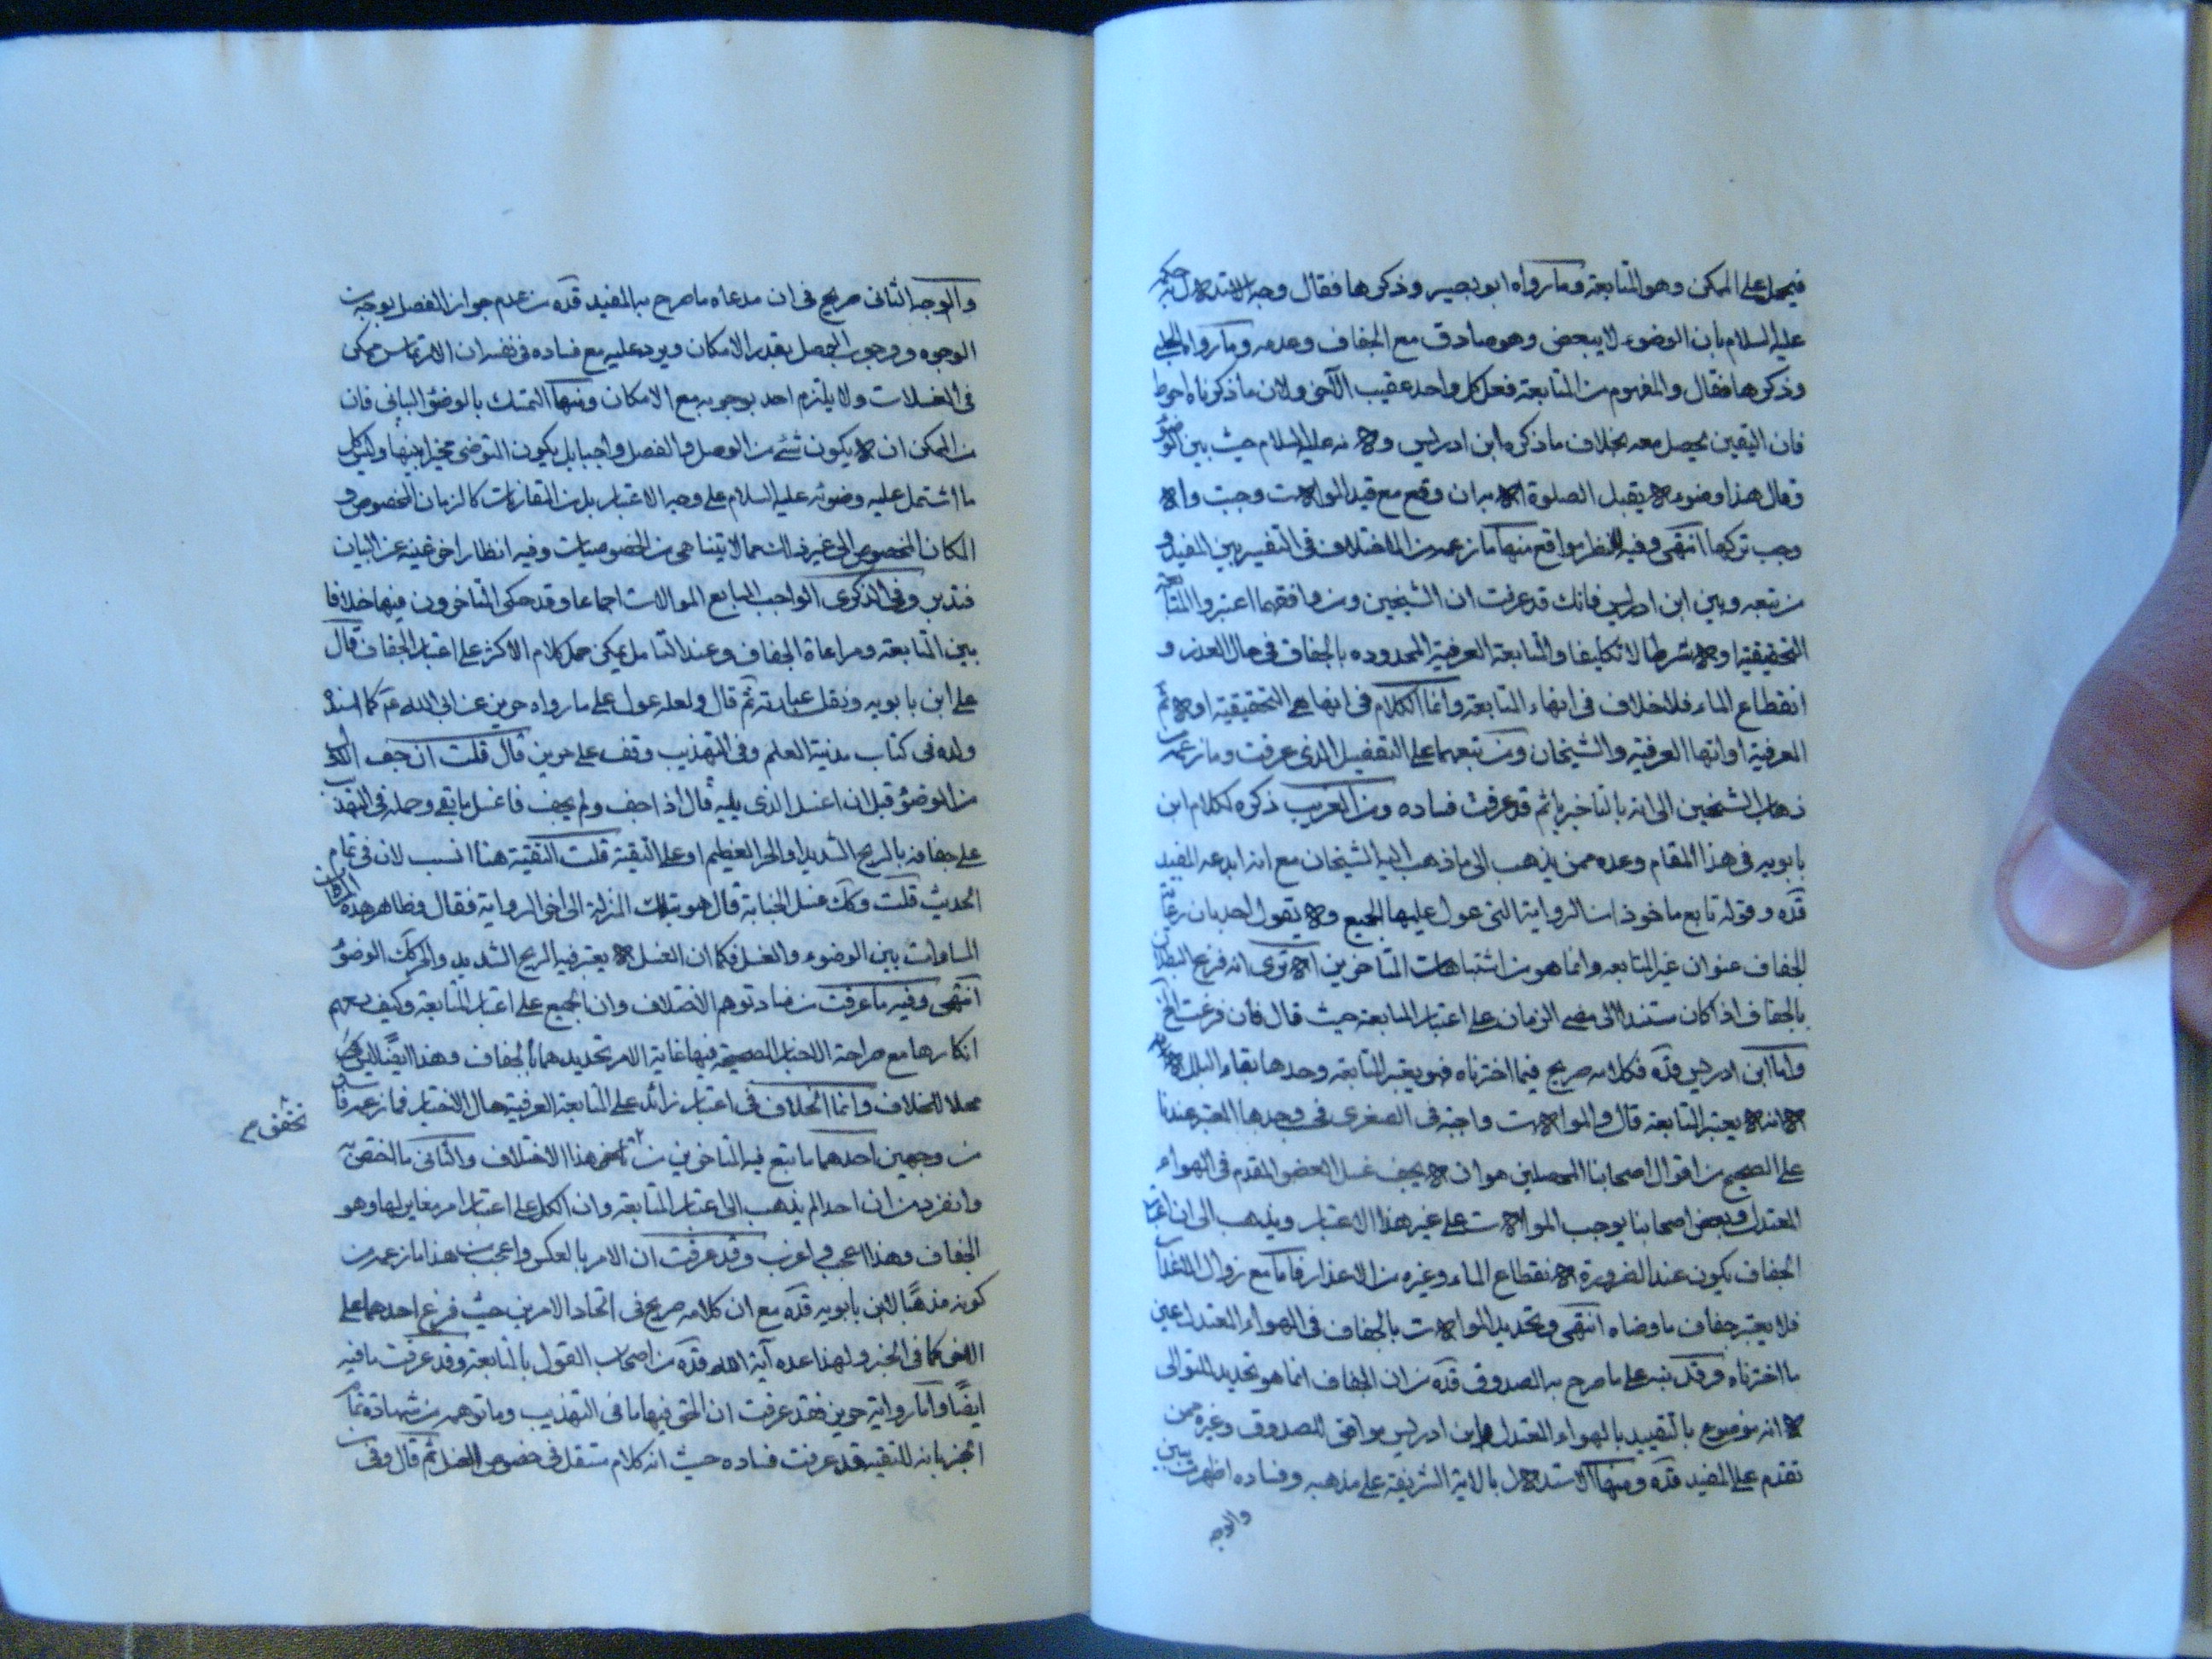 فيحمل على الممكن وهو المتابعة وما رواه ابو بصير وذكرها فقال وجه الاستدلال انه حكم
عليه السلام بان الوضوء لا يبعض وهو صادق مع الجفاف وعدمه وما رواه الحلبي
وذكرها فقال والمفهوم من المتابعة فعل كل واحد عقيب الآخر ولان ما ذكرناه احوط
فان اليقين يحصل معه بخلاف ما ذكره ابن ادريس ولانه عليه السلام حيث بين الوضوء
وقال هذا وضوء لا يقبل الصلوة الا به ان وقع مع قيد الموالات وجبت والا
وجب تركها انتهى وفيه انظار مواقع منها ما زعمه من الاختلاف في التفسير بين المفيد و
من تبعه وبين ابن ادريس فانك قد عرفت ان الشيخين ومن وافقهما اعتبروا المتابعة
التحقيقية اولا شرطا لا تكليفا والمتابعة العرفية المحدوده بالجفاف في حال العذر و
انقطاع الماء فلا خلاف في انهاء المتابعة وانما الكلام في انها هي التحقيقية اولا ثم
العرفية او انها العرفية والشيخان ومن تبعهما على التفصيل الذي عرفت وما زعمه من
ذهاب الشيخين الى انه بالتاخير ياثم قد عرفت فساده ومن الغريب ذكره لكلام ابن
بابويه في هذا المقام وعده ممن يذهب الى ما ذهب اليه الشيخان مع انه ابدعه المفيد
قده وقوله تابع ماخوذ من الرواية التي عول عليها الجميع ولا يقول احد بان رعاية
الجفاف عنوان غير المتابعه وانما هو من اشتباهات المتاخرين الا ترى انه فرع البطلان
بالجفاف اذا كان مستندا الى مضي الزمان على اعتبار المتابعة حيث قال فان فرغت الخ
واما ابن ادريس قده فكلامه صريح فيما اخترناه فهو يعتبر المتابعة وحدها بقاء البلل
لا انه لا يعتبر المتابعة قال والموالات واجبة في الصغرى فحسب وحدها المعتبر عندنا
على الصحيح من اقوال اصحابنا المحصلين هو ان لا يجف غسل العضو المقدم في الهواء
المعتدل وبعض اصحابنا يوجب الموالات على غير هذا الاعتبار ويذهب الى ان اعتبار
الجفاف يكون عند الضرورة لانقطاع الماء وغيره من الاعذار فاما مع زوال الاعذار
فلا يعتبر جفاف ما وضاه انتهى وتحديد الموالات بالجفاف في الهواء المعتدل عين
ما اخترناه وقد نبه على ما صرح به الصدوق قده من ان الجفاف انما هو تحديد للتوالى
لا انه موضوع بالتقييد بالهواء المعتدل فابن ادريس موافق للصدوق وغيره ممن
تقدم على المفيد قده ومنها الاستدلال بالاية الشريفة على مذهبه وفساده اظهر من ان يبين
والوجه
والوجه الثاني صريح في ان مدعاه ما صرح به المفيد قده من عدم جواز الفصل بوجه من
الوجوه ووجوب الوصل بقدر الامكان ويرد عليه مع فساده في نفسه ان الارتماس ممكن
في الغسلات ولا يلتزم احد بوجوبه مع الامكان ومنها التمسك بالوضوء البياني فان
من الممكن ان لا يكون شيء من الوصل والفصل واجبا بل يكون التوضي مخيرا بينها وليس كل
ما اشتمل عليه وضوئه عليه السلام على وجه الاعتبار بل من المقارنات كالزمان المخصوص و
المكان المخصوص الى غير ذلك مما لا يتناهى من الخصوصيات وفيه انظار اخر غنية عن البيان
فتدبر وفي الذكرى الواجب السابع الموالات اجماعا وقد حكى المتاخرون فيها خلافا
بين المتابعة ومراعاة الجفاف وعند التامل يمكن حمل كلام الاكثر على اعتبار الجفاف قال
على ابن بابويه ونقل عبارته ثم قال ولعله عول على ما رواه حريز عن ابي عبد الله ع كما اسنده
ولده في كتاب مدينة العلم وفي التهذيب وقف على حريز قال قلت ان جف الاول
من الوضوء قبل ان اغسل الذي يليه قال اذا جف ولم يجف فاغسل ما بقي وحمله في التهذيب
على جفافه بالريح الشديد او الحر العظيم او على التقية قلت التقية هنا انسب لان في تمام
الحديث قلت وكك غسل الجنابة قال هو بتلك المنزلة الى اخر الرواية فقال وظاهر هذه
المساوات بين الوضوء والغسل فكما ان الغسل لا يعتبر فيه الريح الشديد والحر كك الوضوء
انتهى وفيه ما عرفت من فساد توهم الاختلاف وان الجميع على اعتبار المتابعة وكيف يسعهم
انكارها مع صراحة الاخبار الصحيحة فيها غاية الامر تحديدها بالجفاف وهذا ايضا ليس
محلا للخلاف وانما الخلاف في اعتبار زائد على المتابعة العرفية حال الاختيار فما زعمه فاسد
من وجهين احدهما ما تبع فيه المتاخرين من تحقق هذا الاختلاف والثاني ما اختص به
وانفرد من ان احدا لم يذهب الى اعتبار المتابعة وان الكل على اعتبار امر مغاير لها وهو
الجفاف وهذا اعجب واغرب وقد عرفت ان الامر بالعكس واعجب من هذا ما زعمه من
كونه مذهبا لابن بابويه قده مع ان كلامه صريح في اتحاد الامرين حيث فرع احدهما على
الاخر كما في الخبر ولهذا عده آية الله قده من اصحاب القول بالمتابعة وقد عرفت ما فيه
ايضا واما رواية حريز فقد عرفت ان الحق فيها ما في التهذيب وما توهمه من شهادة تمام
الخبر بانه للتقية قد عرفت فساده حيث انه كلام مستقل في خصوص الغسل ثم قال وفي
تحقق